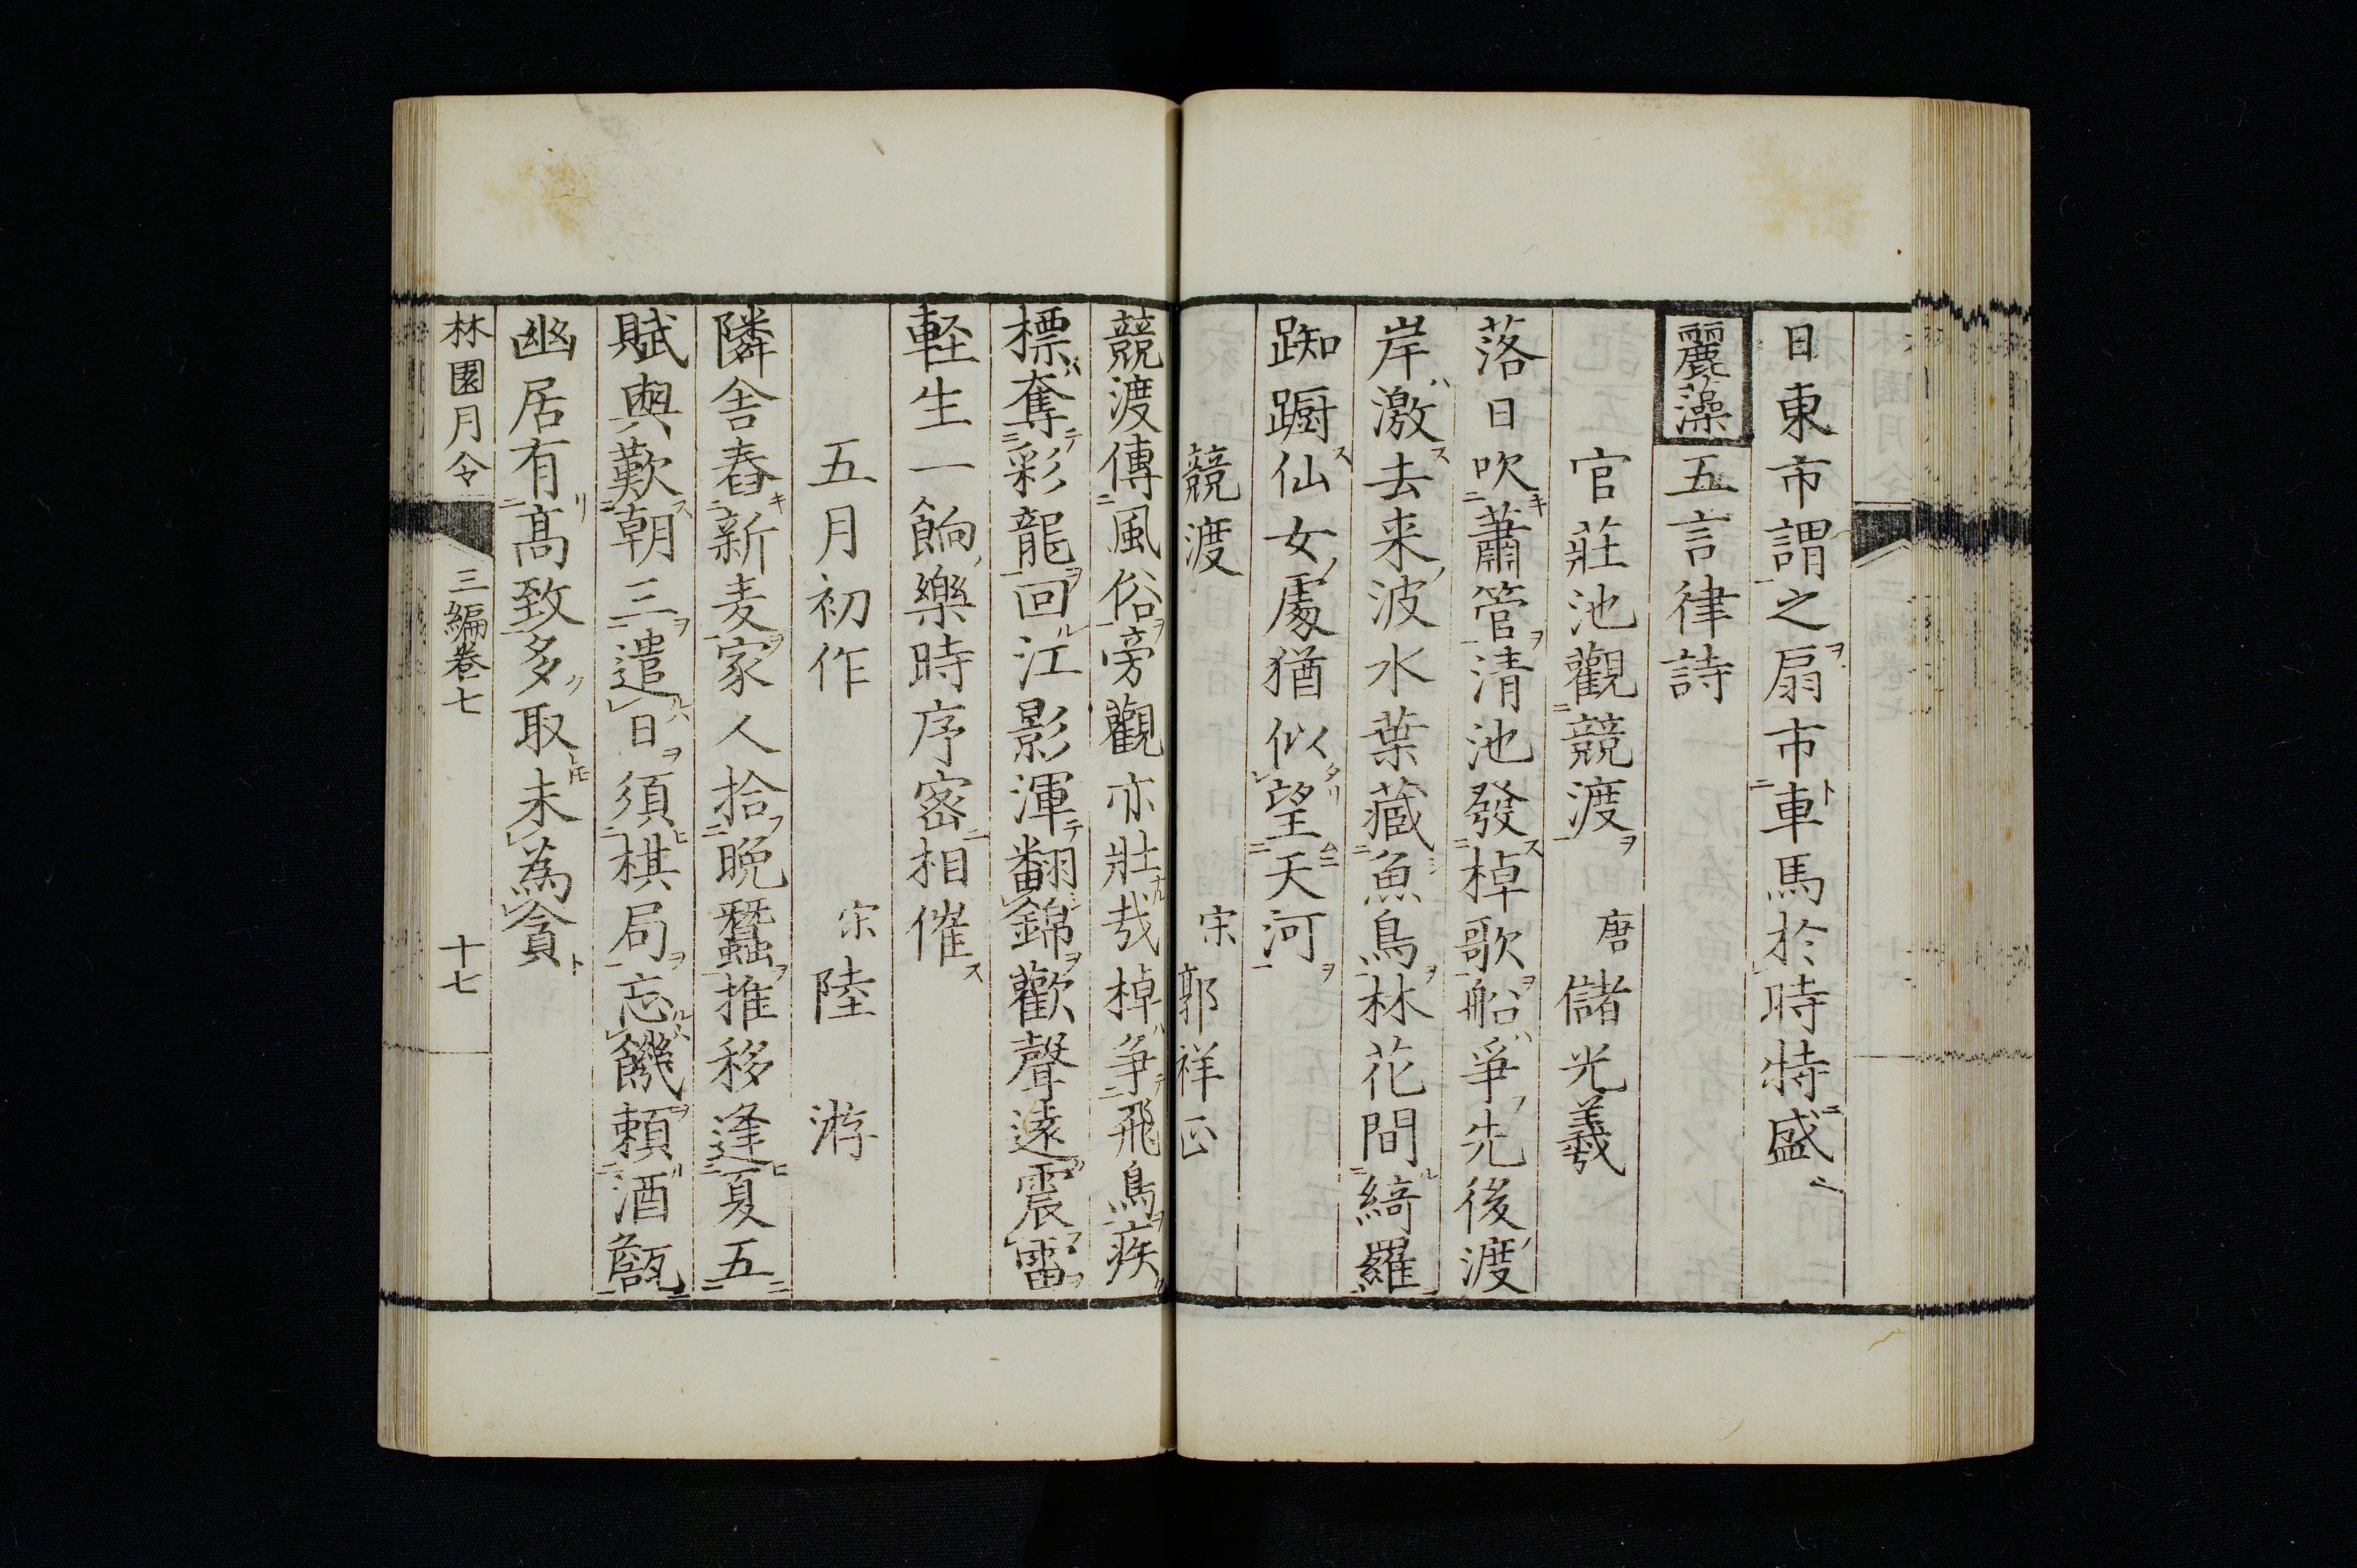 日東市謂之扇市車馬於時特盛
麗藻 五言律詩
官莊池觀競渡 唐 儲光羲
落日吹蕭管清池發棹歌船爭先後渡
岸激去来波水葉藏魚鳥林花間綺羅
踟蹰仙女處猶似望天河
競渡 宋 郭祥正
競渡傳風俗旁觀亦壯哉棹争飛鳥疾
標奪彩龍回江影渾翻錦歡聲遠震雷
軽生一餉樂時序密相催
五月初作 宋 陸 游
隣舎舂新麦家人拾晩蠶推移逢夏五
賦與歎朝三遣日須棋局忘饑頼酒甔
幽居有髙致多取未為貪
林園月令 三編卷七 十七